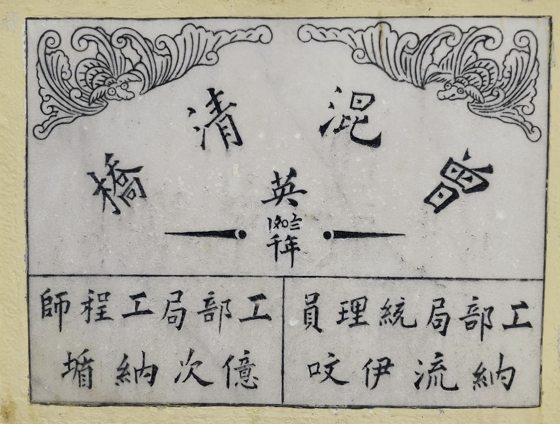 曾混清橋
英
千年
工部局統理員
納流伊咬
工部局工程師
億次納